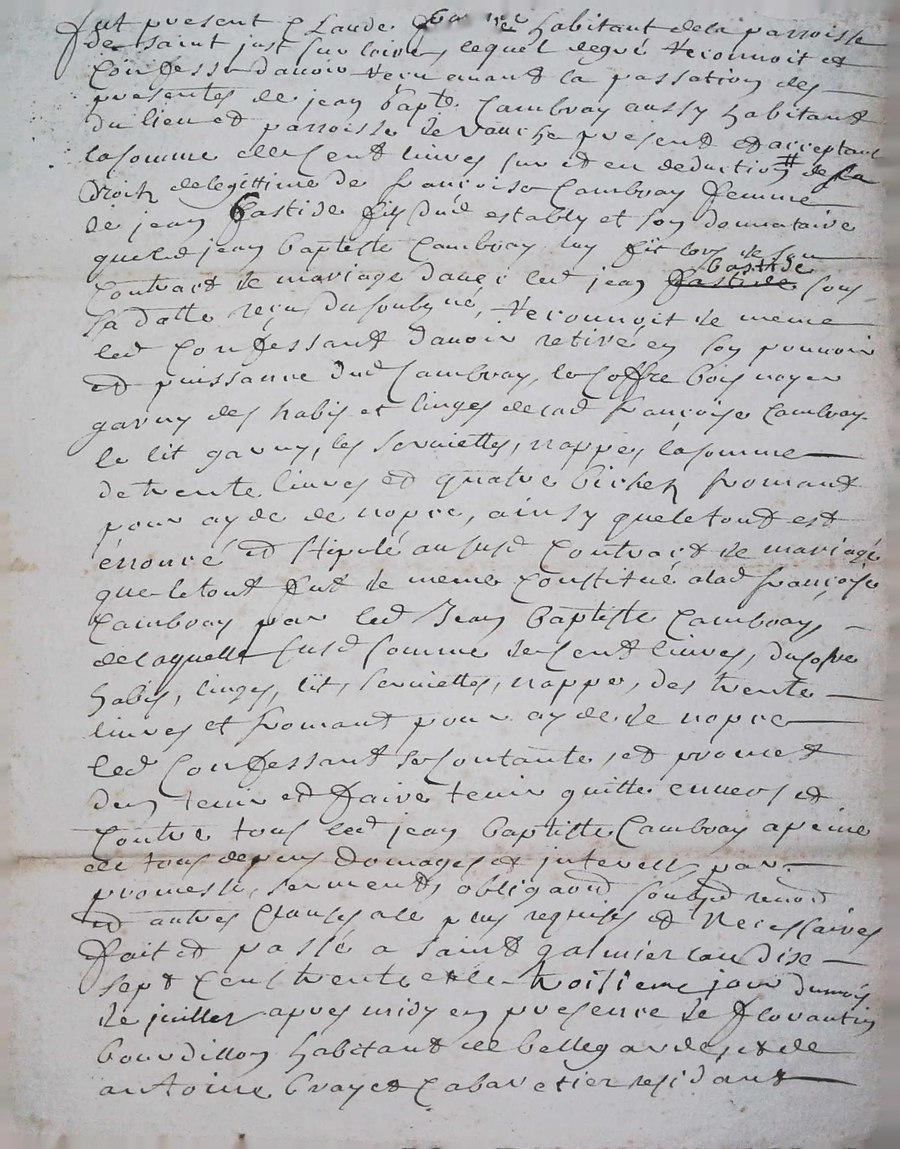 fut present Claude habitant de la parroisse
de saint just sur loire, lequel de gré reconnoit et
Confesse d'avoir reçu avant la passation des
presentes de jean bapte Cambray aussy habitant
du lieu et parroisse de present et acceptant
la somme de Cent livres sur et en deduction # de la
droits de legittime de françoise Cambray femme
de jean Bastide fils dud estably et son donnataire
que led jean baptiste Cambray luy fit lors de son
Contract de mariage avec led jean bastide sous
sa datte reçu du soubsné, reconnoit de meme
led Confessant d'avoir retiré en son pouvoir
et puissance dud Cambray, le Coffre bois noyer
garny des habis et linges de lad françoise Cambray
le lit garny, les serviettes, nappes, la somme
de trente livres et quatre bichets fromant
pour ayde de nopce, ainsy que le tout est
énoncé et stipulé au susd Contract de mariage
que le tout fut de meme Constitué a lad françoise
Cambray par led Jean baptiste Cambray,
de laquelle susd somme de Cent livres, du cofre
habis, linges, lit, serviettes, nappe, des trente
livres et fromant pour ayde de nopce
led Confessant se Contante, et promet
d'en tenir et faire tenir quitte envers et
Contre tous led jean baptiste Cambray a peine
de tous depens domages et interests par
promesse, serments, obligaond renond
et autres Clauses a ce plus requises et Necessaires
fait et passé a saint galmier l'an dixe
sept Cent trente et le troisieme jour du mois
de juillet apres midy en presence de florantin
bourdillon habitant de bellegarde, et de
antoine brayet Cabaretier residant